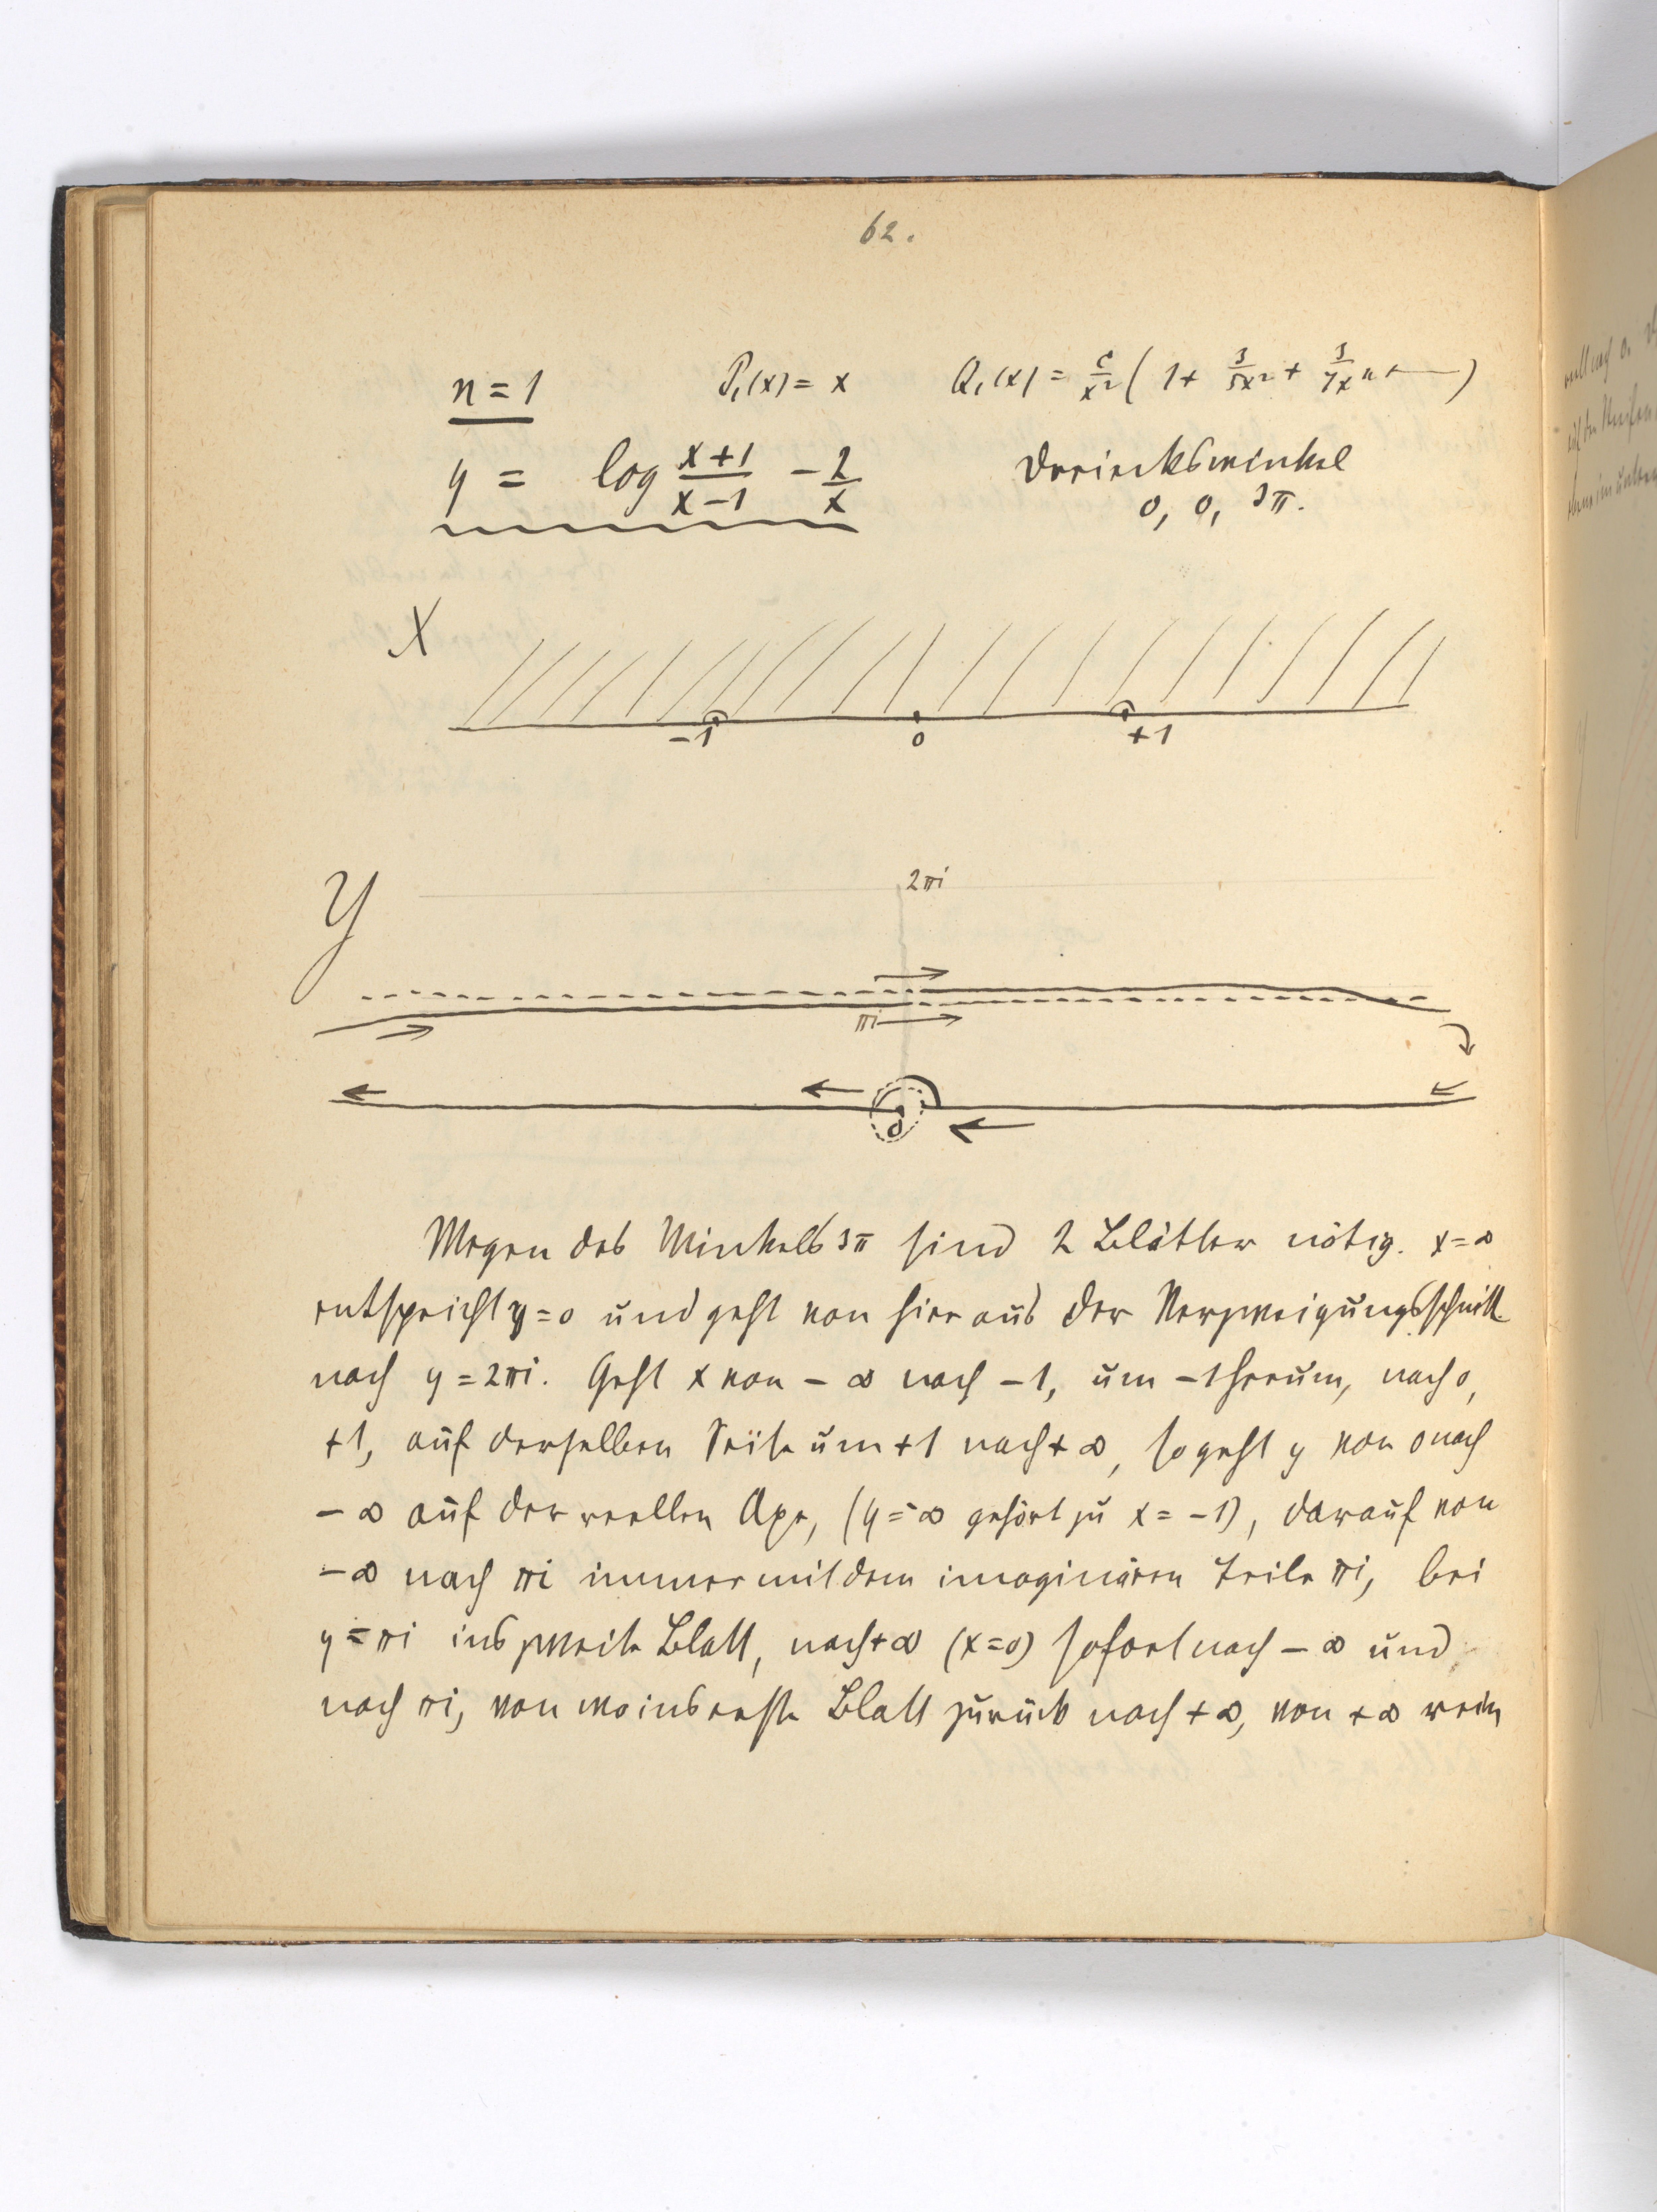 62.
n = 1 P₁(x) = x Q₁(x) = c/x² ( 1 + 3/5x² + 3/7x⁴ + — )
y = log (x+1)/(x−1) − 2/x Dreieckswinkel
0, 0, 3π.
X
−1 0 +1
2πi
Y
πi
0
Wegen des Winkels 3π sind 2 Blätter nötig. x = ∞
entspricht y = 0 und geht von hier aus der Verzweigungsschnitt
nach y = 2πi. Geht x von − ∞ nach −1, um −1 herum, nach 0,
+1, auf derselben Seite um +1 nach + ∞, so geht y von 0 nach
− ∞ auf der reellen Axe, (y = ∞ gehört zu x = −1), darauf von
− ∞ nach πi immer mit dem imaginären Teile πi, bei
y = πi ins zweite Blatt, nach + ∞ (x = 0) sofort nach − ∞ und
nach πi, von wo ins erste Blatt zurück nach + ∞, von + ∞